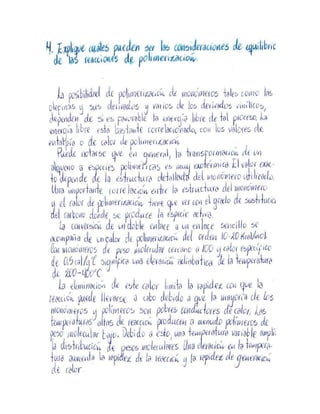 4. Explique cuales pueden ser las consideraciones de equilibrio
de las reacciones de polimerización.
La posibilidad de polimerización de monómeros tales como las
olefinas y sus derivados y varios de los derivados vinílicos,
dependen de si es favorable la energía libre de tal proceso. La
energía libre está bastante correlacionada, con los valores de
entalpía o de calor de polimerización
Puede notarse que en general, la transformación de un
alqueno a especies poliméricas es muy exotérmica. El valor exac-
to depende de la estructura detallada del monómero utilizado.
Una importante correlación entre la estructura del monómero
y el calor de polimerización tiene que ver con el grado de sustitución
del carbono donde se produce la especie activa.
La conversión de un doble enlace a un enlace sencillo se
acompaña de un calor de polimerización del orden 10-20 kcal/mol
Con monómeros de peso molecular cercano a 100 y calor específico
de 0.5 cal/g°C significa una elevación adiabática de la temperatura
de 200-400°C
La eliminación de este calor limita la rapidez con que la
reacción puede llevarse a cabo debido a que la mayoría de los
monómeros y polímeros son pobres conductores de calor. Las
temperaturas altas de reacción producen a menudo polímeros de
peso molecular bajo. Debido a esto, una temperatura variable amplia
la distribución de pesos moleculares. Una elevación en la tempera-
tura aumenta la rapidez de la reacción y la rapidez de generación
de calor.